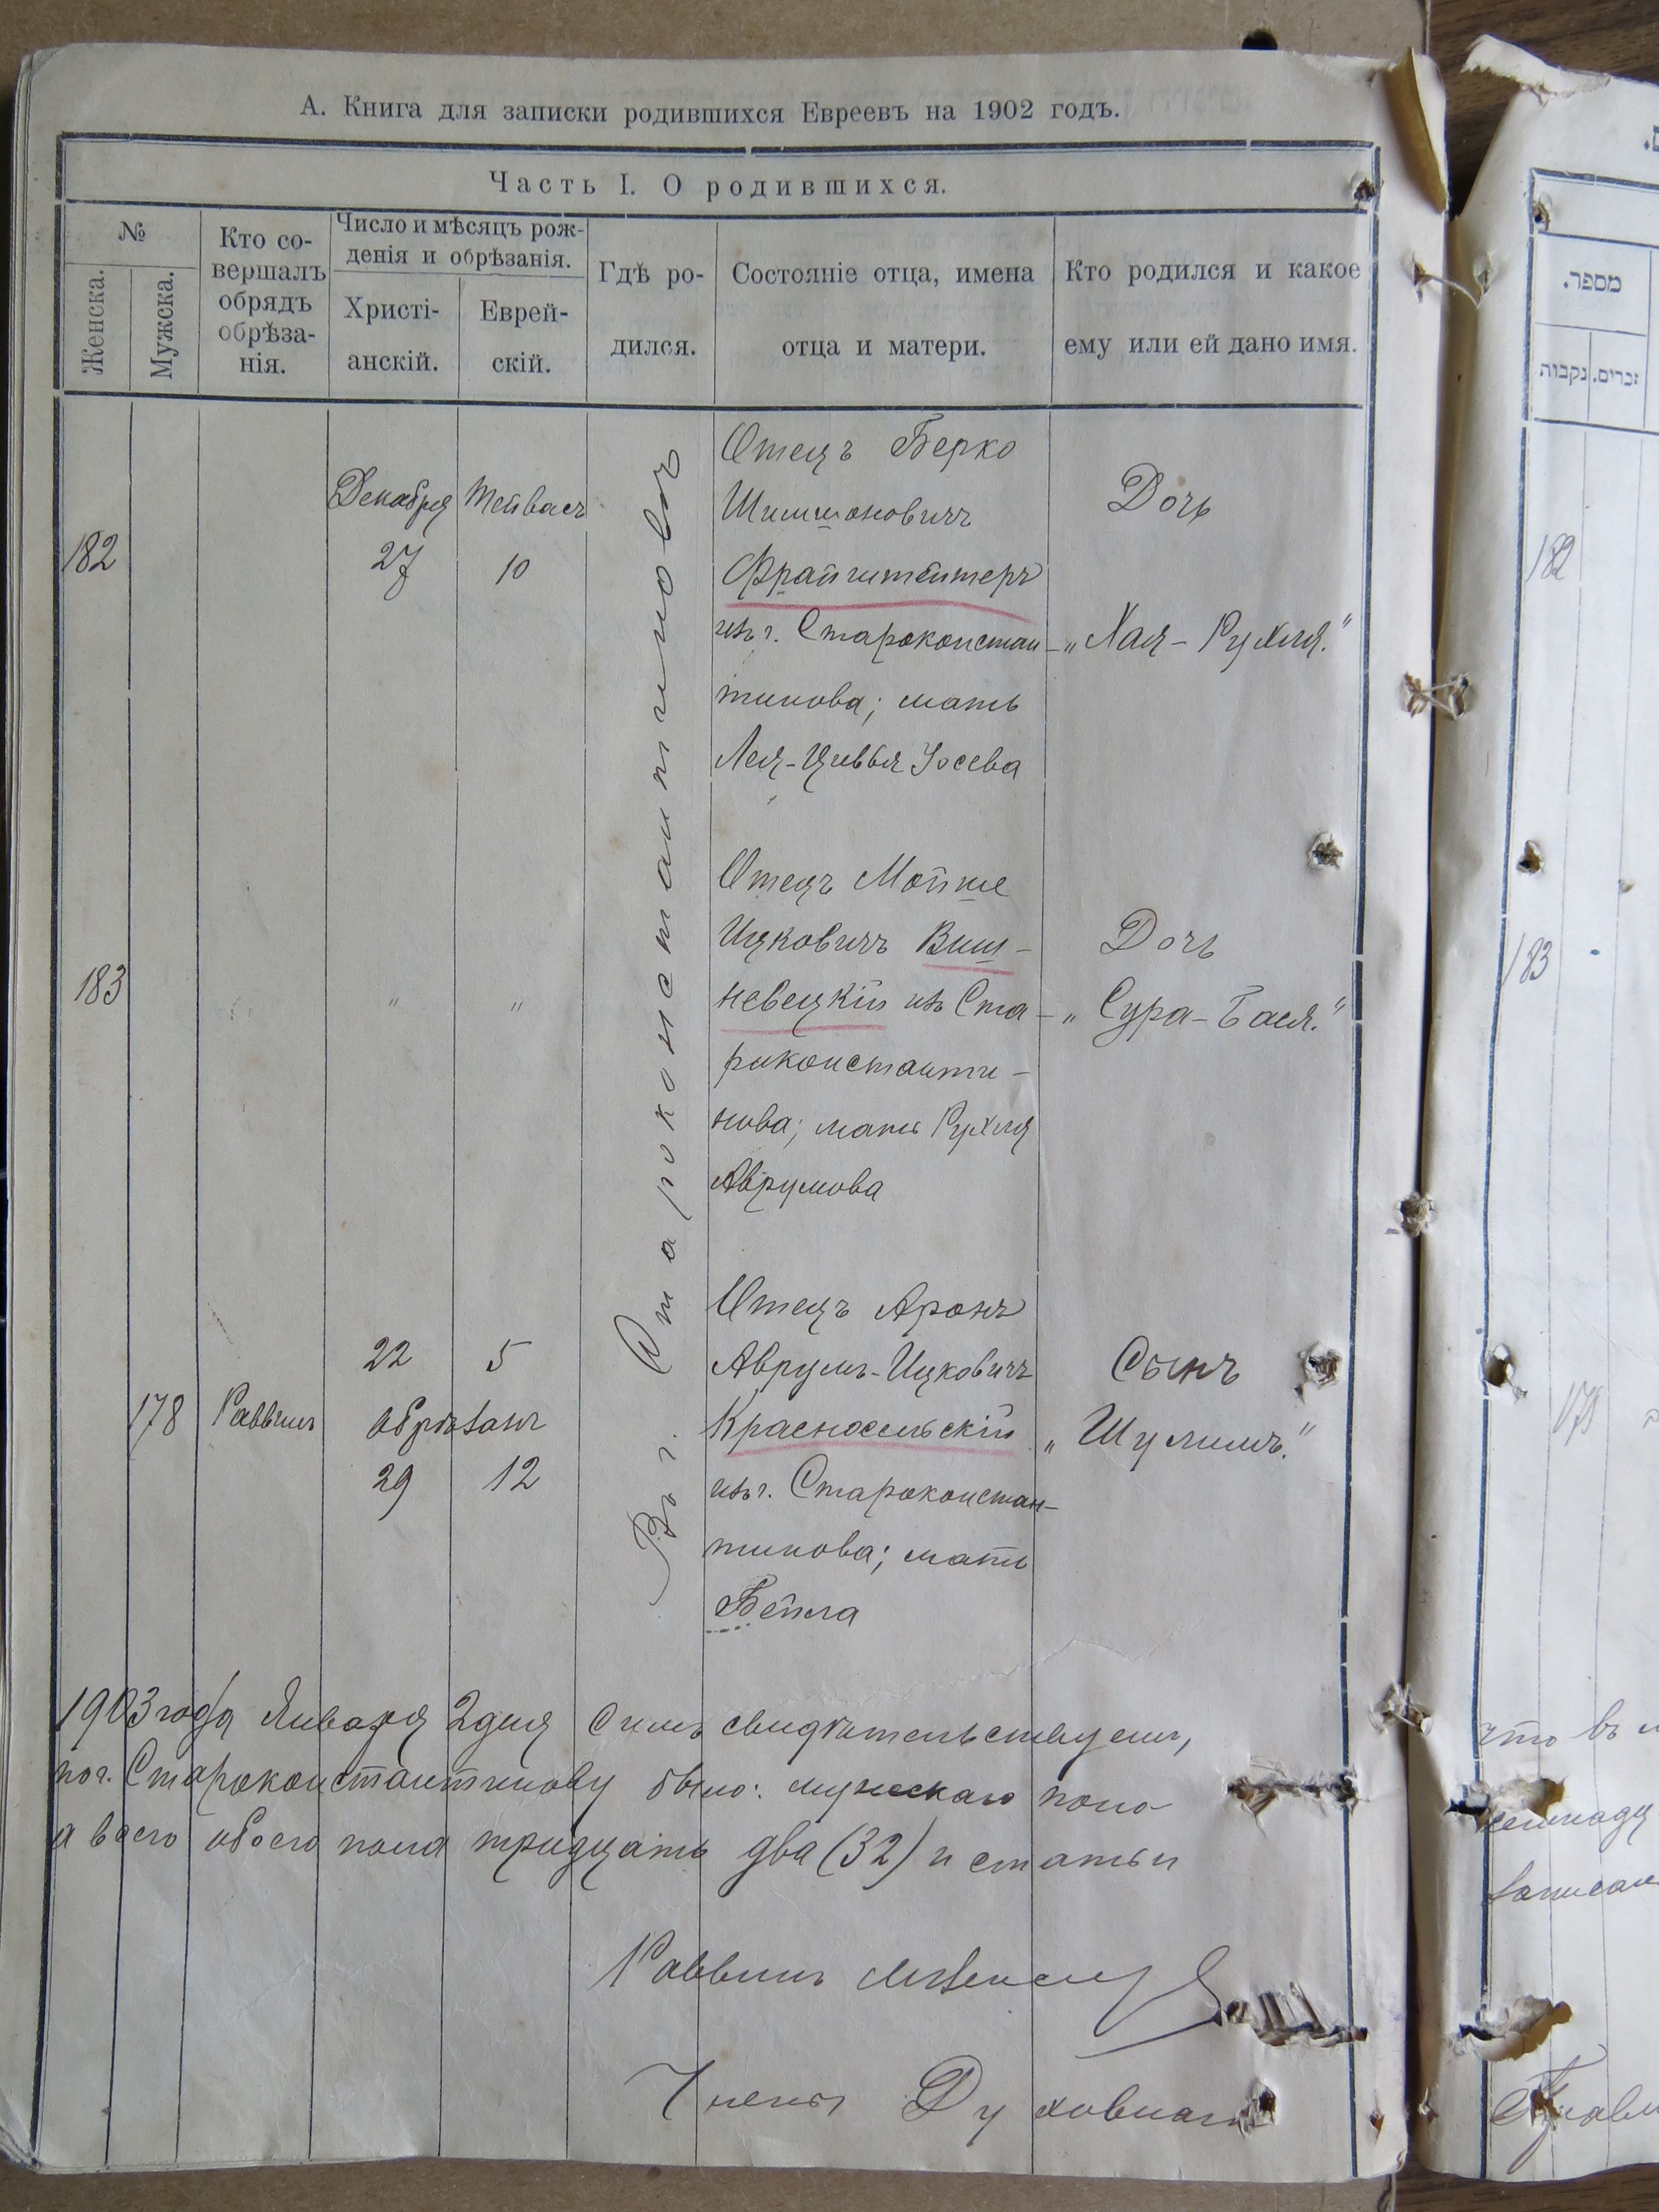 А. Книга для записки родившихся Евреевъ на 1902 годъ.
Часть I. О родившихся.
№
Женска.
Мужска.
Кто со-
вершалъ
обрядъ
обрѣза-
нія.
Число и мѣсяцъ рож-
денія и обрѣзанія.
Христі-
анскій.
Еврей-
скій.
Гдѣ ро-
дился.
Состояніе отца, имена
отца и матери.
Кто родился и какое
ему или ей дано имя.
Въ г. Староконстантиновѣ
182
Декабря
27
Тейвасъ
10
Отецъ Берко
Шимшоновичъ
Фрайштетеръ
изъ г. Староконстан-
тинова; мать
Лея-Цивья Iосева
Дочь
„Хая-Рухля."
183
" "
Отецъ Мойше
Ицковичъ Виш-
невецкій изъ Ста-
роконстанти-
нова; мать Рухля
Аврумова
Дочь
„Сура-Бася."
178
Раввинъ
22 5
обрѣзанъ
29 12
Отецъ Аронъ
Аврумъ-Ицковичъ
Красносельскій
изъ г. Староконстан-
тинова; мать
Бейла
Сынъ
„Шулимъ."
1903 года Января 2 дня Симъ свидѣтельствуемъ,
по г. Староконстантинову было: мужскаго поло-
а всего обоего пола тридцать два (32) и статьи
Раввинъ
Члены Духовнаго
מספר.
זכרים.
נקבות
182
183
178
что въ
записан